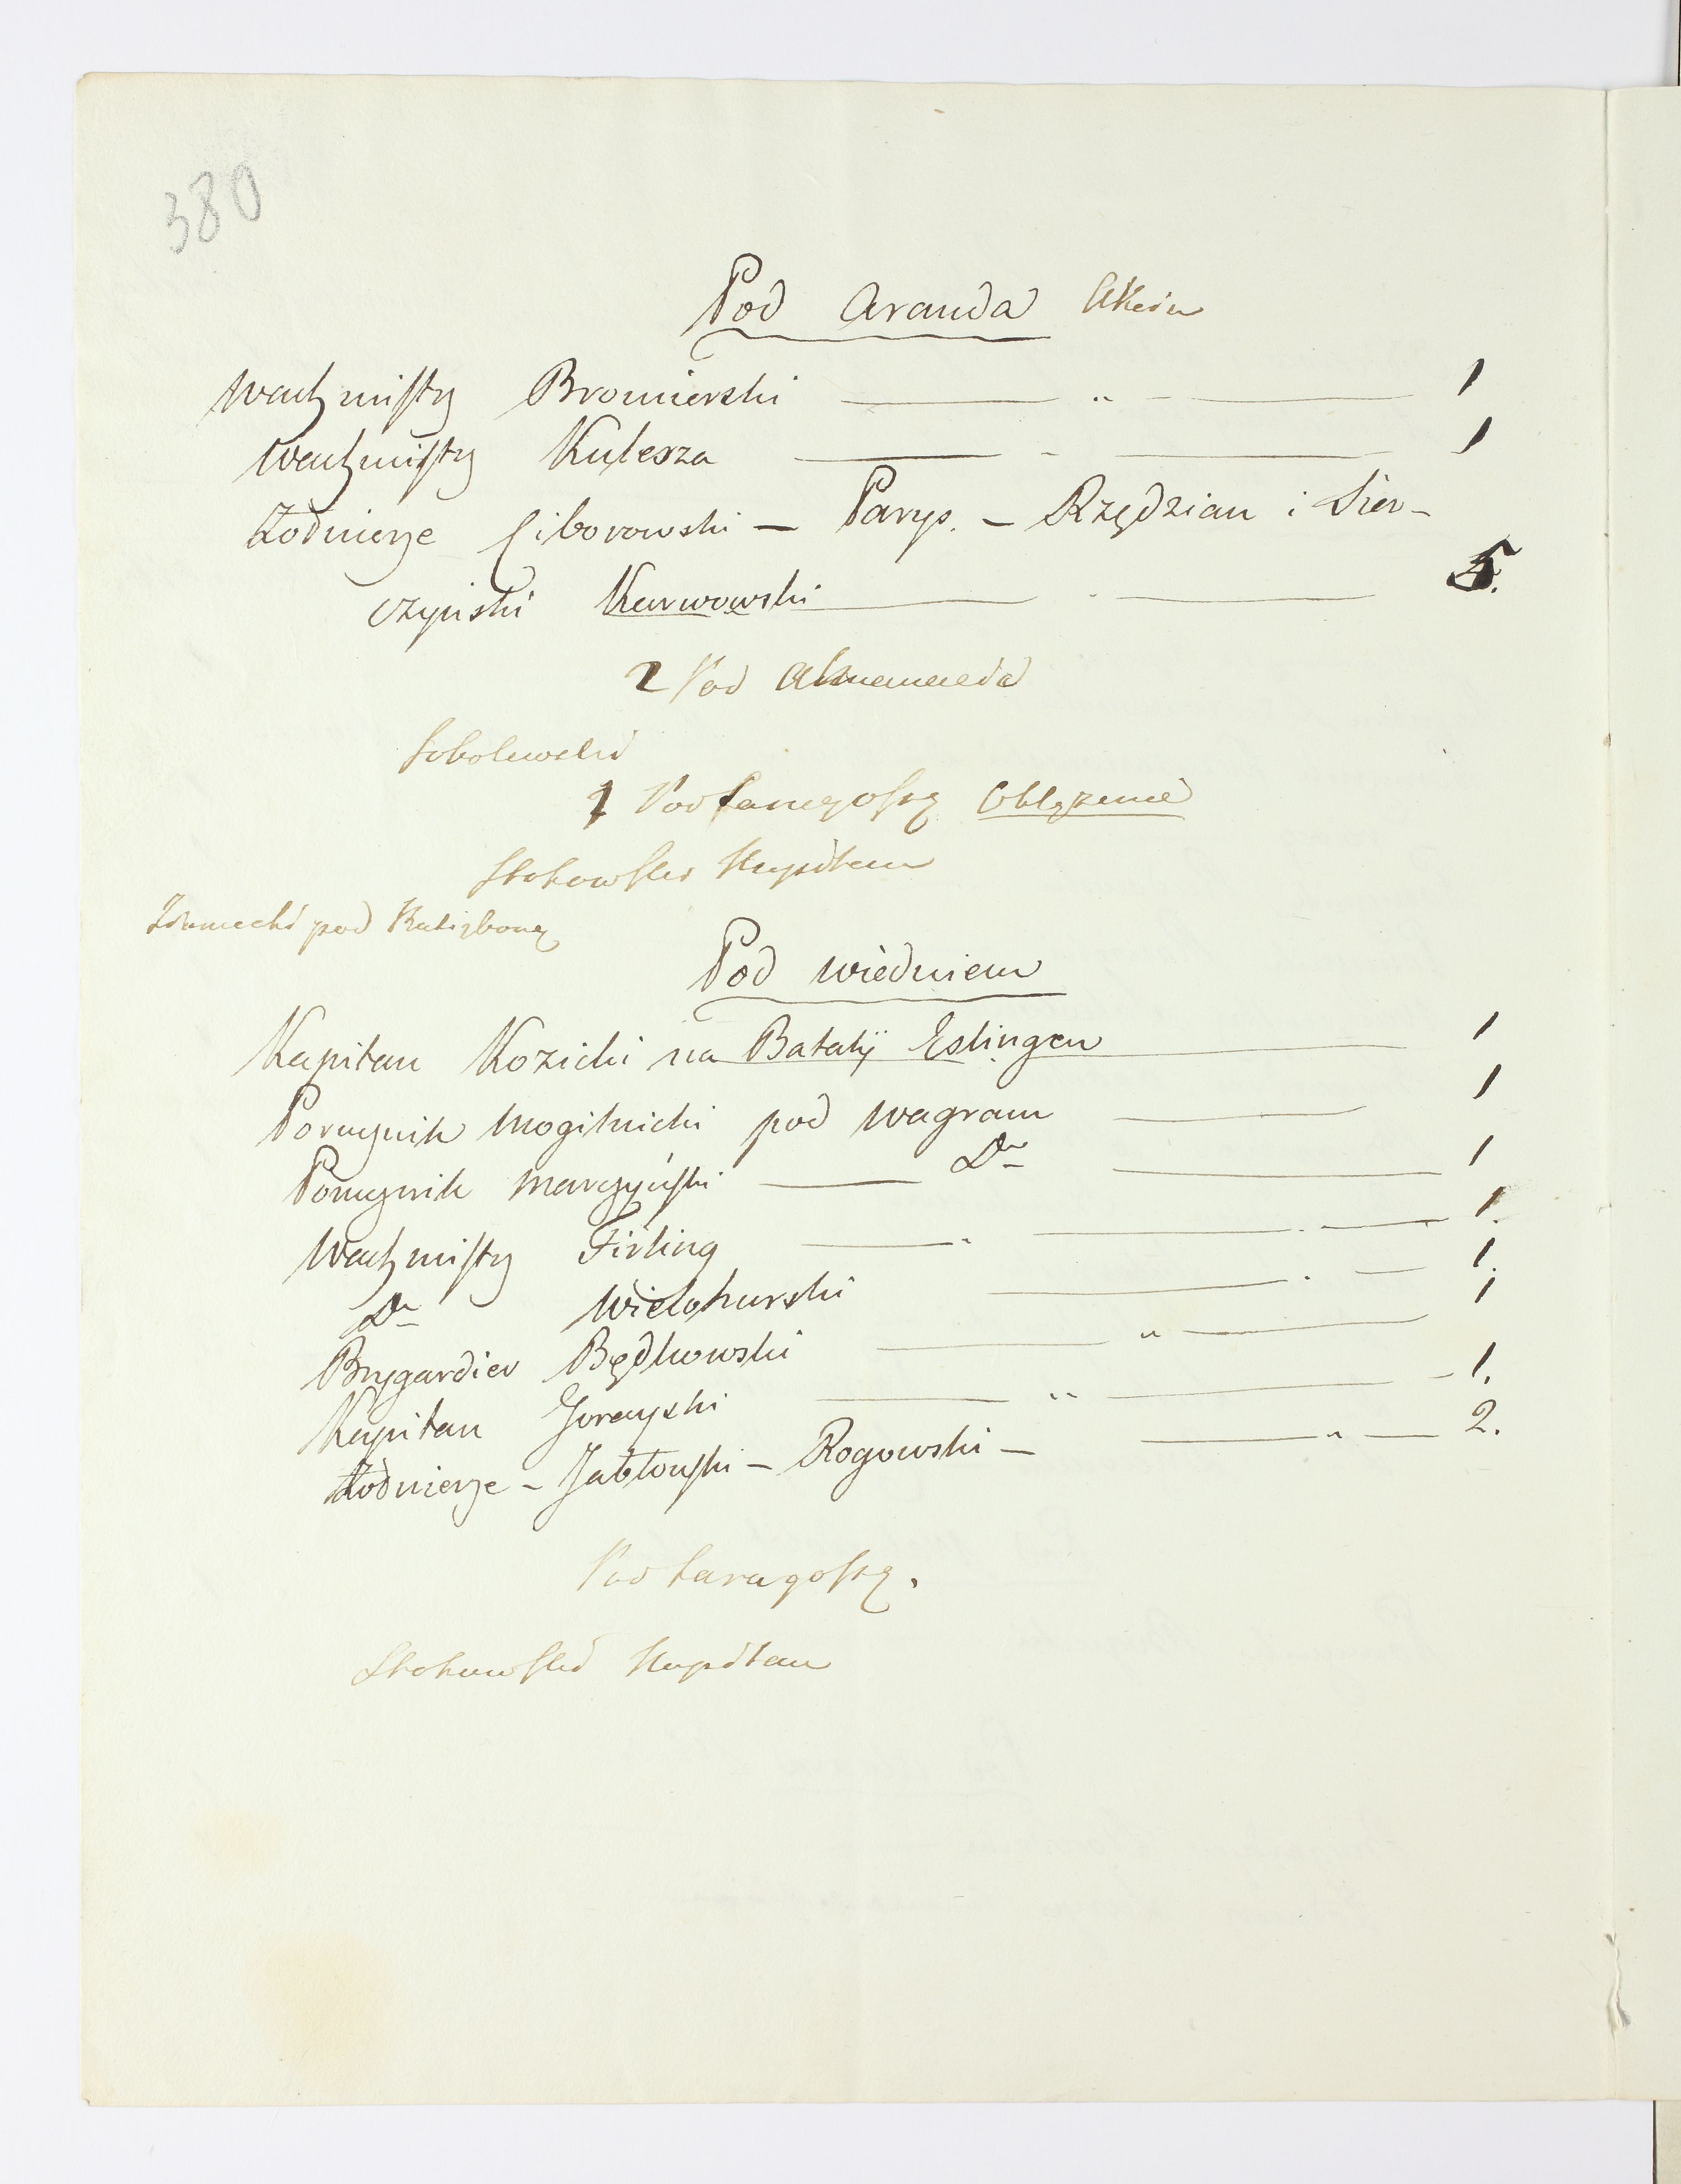 380
Pod Aranda
Wachmistrz Bromierski — " — 1
Wachmistrz Kulesza — " — 1
Żołnierze Ciborowski — Parys. — Rzędzian i Sier-
czyński Karwowski — " — 5.
2 Pod
Sobolewski
1 Pod Saragossą Oblężenie
Stokowski Kapitan
pod Ratisboną
Pod Wiedniem
Kapitan Kozicki na Batalÿ Eslingen — 1
Porucznik Mogilnicki pod Wagram — 1
Porucznik Marczyński — Do — 1
Wachmistrz Firling — " — 1.
Do Wielohurski — 1.
Brygardier Będkowski — " — 1
Kapitan Gorayski — " — 1.
Żołnierze — Jabłoński — Rogowski — " — 2.
Pod Saragossą.
Stokowski Kapitan